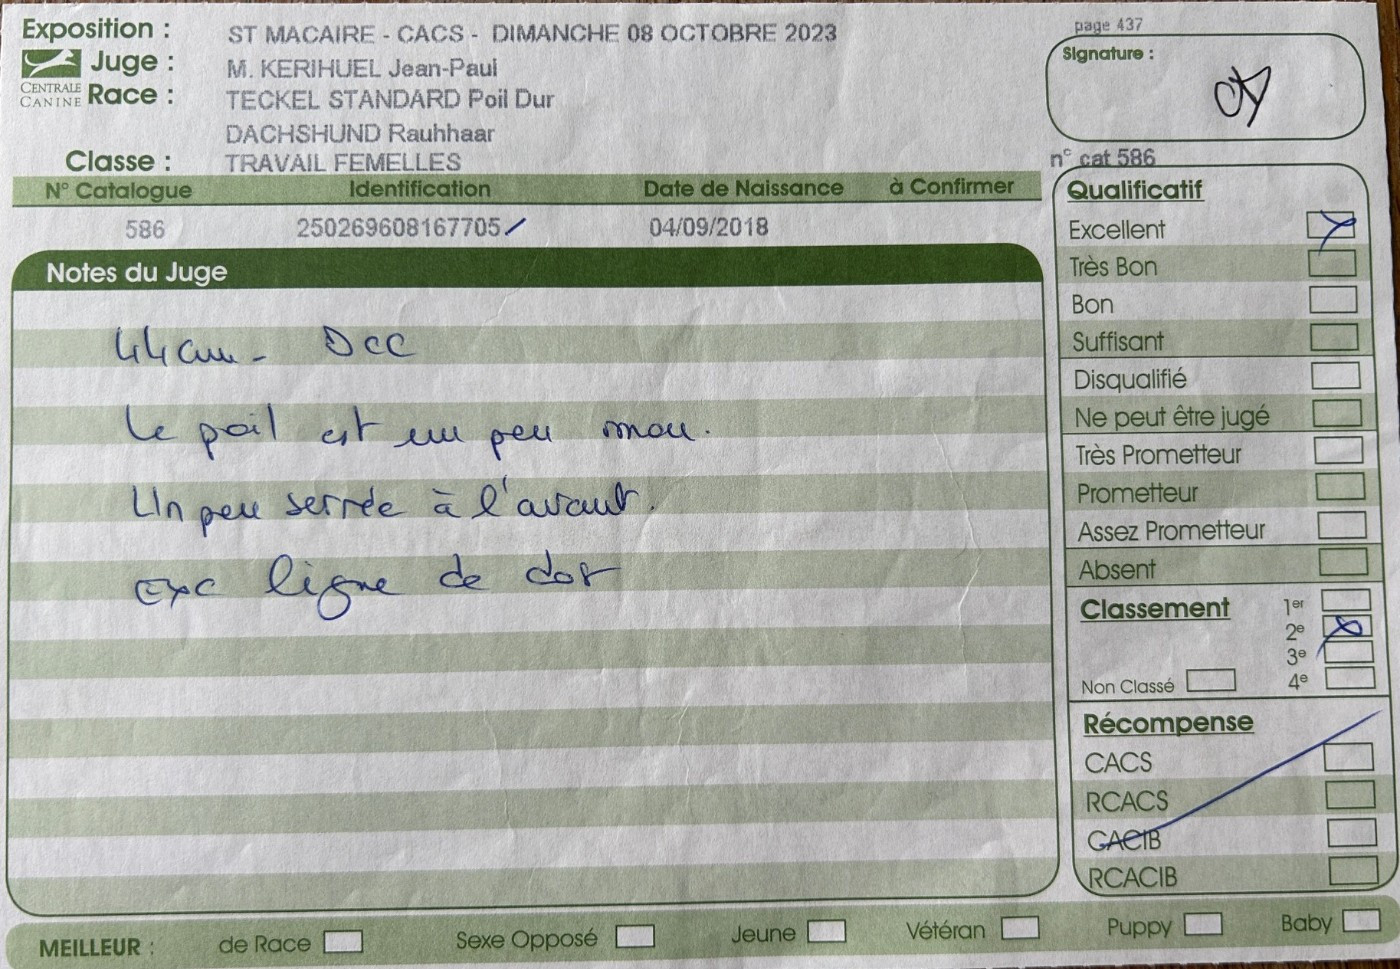 Exposition : ST MACAIRE - CACS - DIMANCHE 08 OCTOBRE 2023
Juge : M. KERIHUEL Jean-Paul
CENTRALE CANINE
Race : TECKEL STANDARD Poil Dur
DACHSHUND Rauhhaar
Classe : TRAVAIL FEMELLES
page 437
Signature :
n° cat 586
N° Catalogue Identification Date de Naissance à Confirmer
586 250269608167705 04/09/2018
Notes du Juge
44cm - Dcc
Le poil est un peu mou.
Un peu serrée à l'avant.
Exc ligne de dos
Qualificatif
Excellent
Très Bon
Bon
Suffisant
Disqualifié
Ne peut être jugé
Très Prometteur
Prometteur
Assez Prometteur
Absent
Classement 1er
2e
3e
Non Classé 4e
Récompense
CACS
RCACS
CACIB
RCACIB
MEILLEUR : de Race Sexe Opposé Jeune Vétéran Puppy Baby